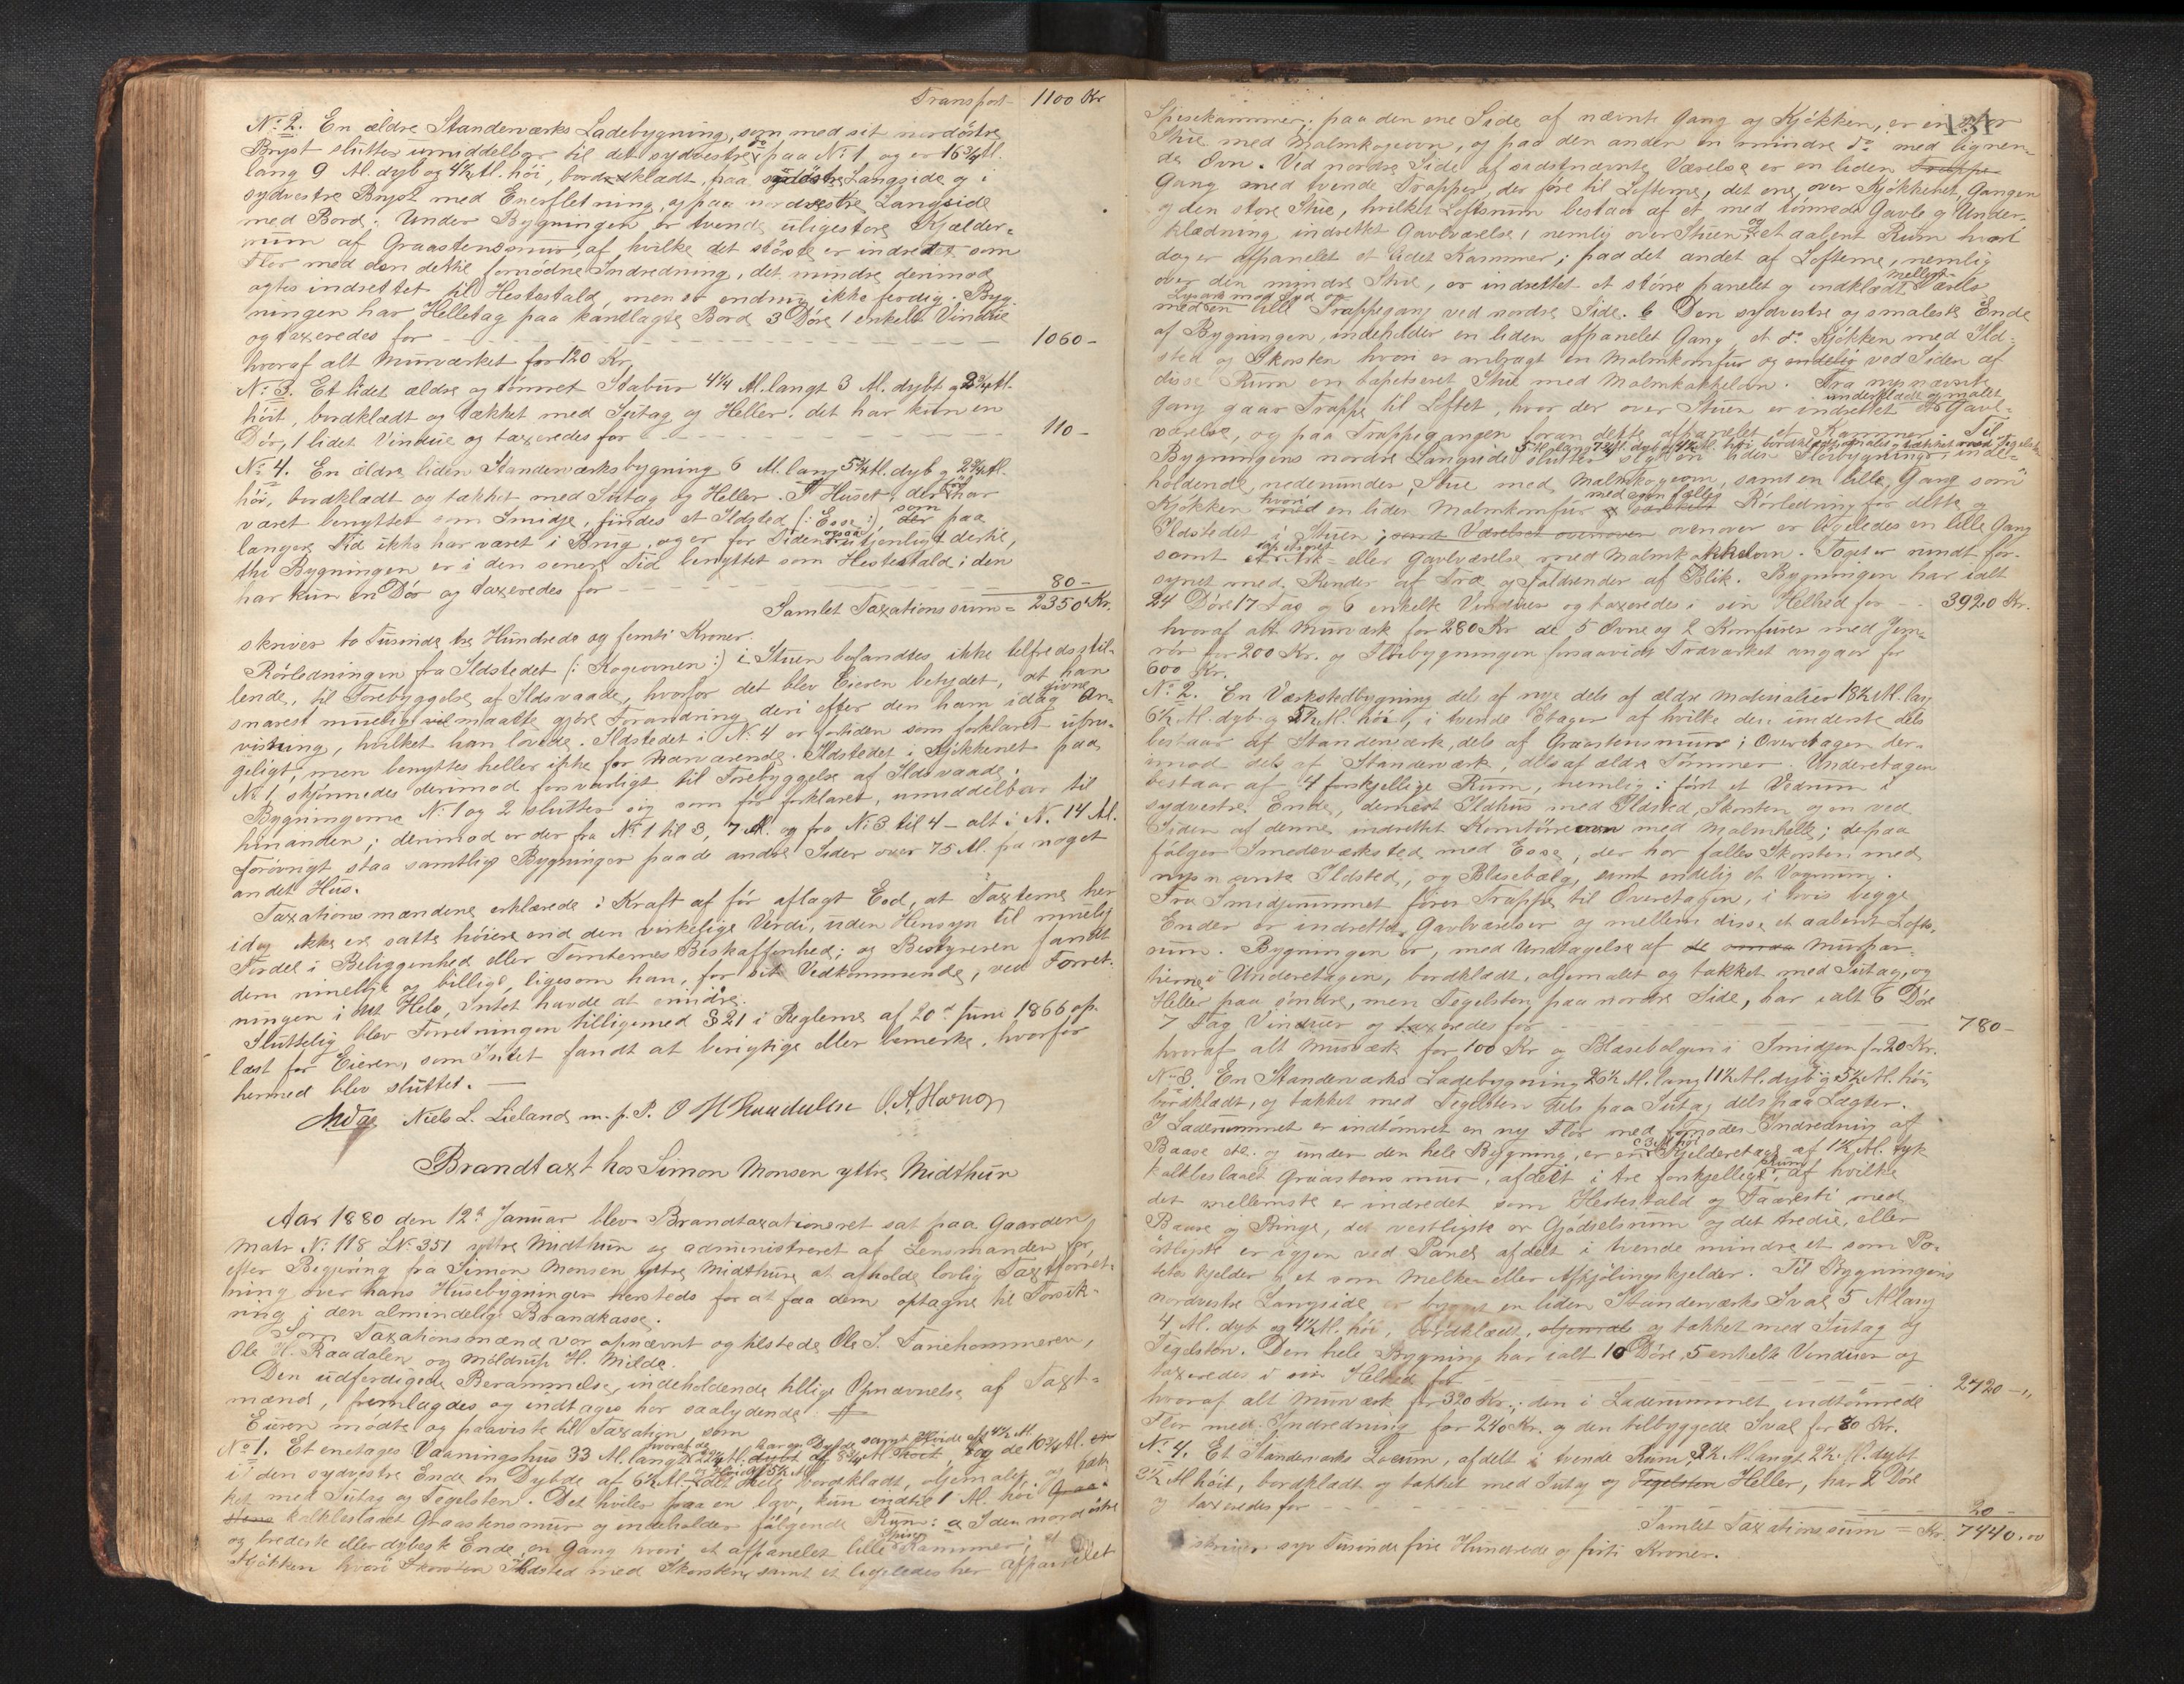 Transport 1100 Kr
No 2. En ældre Standerværks Ladebygning, som med sit nordöstre
Bryst slutter umiddelbar til det sydvestre do paa No 1, og er 16 3/4 Al.
lang 9 Al. dyb og 4 1/2 Al. höi, bordklædt paa Langside og i
sydvestre Bryst med Enerfletning, og paa nordvestre Langside
med Bord. Under Bygningen er tvende uligestore Kjælder-
rum af Graastensmur, af hvilke det störste er indredet som
Flor med den dertil fornödne Indredning, det mindre derimod
agtes indrettet til Hestestald, men er endnu ikke ferdig. Byg-
ningen har Helletag paa kantlagte Bord 3 Döre 1 enkelt Vindue
og taxeredes for 1060 -
hvoraf alt Murværket for 120 Kr.
No 3. Et lidet ældre og tömret Stabur 4 1/4 Al. langt 3 Al. dybt og 2 3/4 Al.
höit, bordklædt og tækket med Sutag og Heller. det har kun en
Dör, 1 lidet Vindue og taxeredes for 110 -
No 4. En ældre liden Standerværksbygning 6 Al. lang 5 3/4 Al. dyb og 2 3/4 Al.
höi, bordklædt og tækket med Sutag og Heller. I Huset, der för har
været benyttet som Smidje, findes et Ildsted (: Esse :), som der paa
længere Tid ikke har været i Brug, og er for Tiden ogsaa utjenligt dertil,
thi Bygningen er i den senere Tid benyttet som Hestestald; den
har kun en Dör og taxeredes for 80 -
Samlet Taxationssum = 2350 Kr.
skriver to Tusinde tre Hundrede og femti Kroner.
Rörledningen fra Ildstedet (: Kogeovnen :) i Stuen befandtes ikke tilfredsstil-
lende, til Forebyggelse af Ildsvaade, hvorfor det blev Eieren betydet, at han
snarest mueligt vil maatte gjöre Forandring deri efter den ham idag givne An-
visning, hvilket han lovede. Ildstedet i No 4 er fortiden som forklaret ubru-
geligt, men benyttes heller ikke for Nærværende. Ildstedet i Kjökkenet paa
No 1 skjönnedes derimod forsvarligt til Forebyggelse af Ildsvaade.
Bygningerne No 1 og 2 slutter sig som för forklaret, umiddelbar til
hinanden; derimod er der fra No 1 til 3, 7 Al. og fra No 3 til 4 - alt i N. 14 Al.
Forövrigt staa samtlige Bygninger paa de andre Sider over 75 Al. fra noget
andet Hus.
Taxationsmændene erklærede i Kraft af för aflagt Eed, at Taxterne her
idag ikke er satte höiere end den virkelige Verdi, uden Hensyn til muelig
Fordel i Beliggenhed eller Tomternes Beskaffenhed; og Bestyreren fandt
dem rimelige og billige, ligesom han, for sit Vedkommende, ved Forret-
ningen i det Hele, Intet havde at erindre.
Sluttelig blev Forretningen tilligemed § 21 i Reglerne af 20de Juni 1866 op-
læst for Eieren, som Intet fandt at berigtige eller bemerke, hvorfor
hermed blev sluttet. -
Niels L. Lieland m. f. P. O H Raadalen O. A. Hornes
Brandtaxt hos Simon Monsen yttre Midthun
Aar 1880 den 12te Januar blev Brandtaxationsret sat paa Gaarden
Matr. No 118 LNo 351 yttre Midthun og administreret af Lensmanden for,
efter Begjæring fra Simon Monsen yttre Midthun, at afholde lovlig Taxtforret-
ning over hans Husebygninger hersteds for at faa dem optagne til Forsik-
ring i den almindelige Brandkasse.
Som Taxationsmænd var opnævnt og tilstede Ole S. Tariehammeren,
Ole H. Raadalen og Möldrup H. Milde.
Den udferdigede Berammelse, indeholdende tillige Opnævnelse af Taxt-
mænd, fremlagdes og indtages her saalydende:
Eieren mödte og paaviste til Taxation som
No 1. Et enetages Vaaningshus 33 Al. langt hvoraf de 22 1/4 Al. har en Dybde af 8 3/4 samt Höide af 4 1/2 Al. og de 10 3/4 Al.
i den sydvestre Ende en Dybde af 6 1/2 Al. og Höide af 5 1/2 Al. det Hele bordklædt, oljemalet og tæk-
ket med Sutag og Tegelsten. Det hviler paa en lav, kun indtil 1 Al. höi
kalkbeslaaet Graastensmur og indeholder fölgende Rum: a I den nordöstre
og bredeste eller dybeste Ende, en Gang hvori et afpanelet lille Spise Kammer; et
Kjökken hvori Skorsten Ildsted med Skorsten, samt et ligeledes her afpanelet
Spisekammer; paa den ene Side af nævnte Gang og Kjökken, er en större
Stue med Malmkogeovn, og paa den anden en mindre do med lignen-
de Ovn. Ved nordre Side af sidstnævnte Værelse er en liden Trappe
Gang med tvende Trapper, der före til Lofterne, det ene over Kjökkenet, Gangen
og den store Stue, hvilket Loftsrum bestaar af et med tömrede Gavle og Under-
klædning indrettet Gavlværelse, nemlig over Stuen, og et aabent Rum hvori
dog er afpanelet et lidet Kammer; paa det andet af Lofterne, nemlig
over den mindre Stue, er indrettet et större panelet og indklædt mellem Værelse
med en lille Trappegang ved nordre Side. b Den sydvestre og smaleste Ende
af Bygningen, indeholder en liden afpanelet Gang, et do Kjökken med Ild-
sted og Skorsten hvori er anbragt en Malmkomfur og endelig ved Siden af
disse Rum en tapetseret Stue med Malmkakkelovn. Fra nysnævnte
Gang gaar Trappe til Loftet, hvor der over Stuen er indrettet et underklædt og malet Gavl-
værelse, og paa Trappegangen foran dette afpanelet et Kammer. Til
Bygningens nordre Langside slutter sig en 5 Al. lang 7 1/4 Al. dyb og 4 1/2 Al. höi bordklædt, malet og tækket med Tegelsten liden Flöibygning, inde-
holdende, nedenunder, Stue med Malmkogeovn, samt en lille Gang som
Kjökken hvori med en liden Malmkomfur med egen fælles Rörledning for dette og
Ildstedet i Stuen; samt Værelset ovenover ovenover er ligeledes en lille Gang
samt et eller Gavlværelse med Malmkakkelovn. Taget er rundt for-
synet med Render af Træ og Faldrender af Blik. Bygningen har ialt
24 Döre 17 Fag og 6 enkelte Vinduer og taxeredes i sin Helhed for 3920 Kr.
hvoraf alt Murværk for 280 Kr de 5 Ovne og 2 Komfurer med Jern-
rör for 200 Kr. og Flöibygningen forsaavidt Træværket angaar for
600 Kr.
No 2. En Værkstedbygning dels af nye dels af ældre Materialier 18 1/2 Al. lang
6 1/2 Al. dyb og 5 1/2 Al. höi, i tvende Etager af hvilke den underste dels
bestaar af Standerværk, dels af Graastensmur; Overetagen der-
imod dels af Standerværk, dels af ældre Tömmer. Underetagen
bestaar af 4 forskjellige Rum, nemlig: först et Vedrum i
sydvestre Ende, dernæst Ildhus med Ildsted, Skorsten og en ved
Siden af denne indrettet Korntörreovn med Malmhelle; derpaa
fölger Smedeværksted med Esse, der har fælles Skorsten med
nysnævnte Ildsted, og Blæsebælg, samt endelig et Vognrum.
Fra Smidjerummet förer Trappe til Overetagen, i hvis begge
Ender er indrettet Gavlværelser og mellem disse et aabent Lofts-
rum. Bygningen er, med Undtagelse af de Murpar-
tierne i Underetagen, bordklædt, oljemalet og tækket med Sutag, og
Heller paa söndre, men Tegelsten paa nordre Side, har ialt 6 Döre
7 Fag Vinduer og taxeredes for 780 -
hvoraf alt Murværk for 100 Kr og Blæsebelgen i Smidjen for 20 Kr.
No 3. En Standerværks Ladebygning 26 1/2 Al. lang 11 1/2 Al. dyb og 5 1/2 Al. höi,
bordklædt, og tækket med Tegelsten dels paa Sutag dels paa Lægter.
I Laderummet er indtömret en ny Flor med fornöden Indredning af
Baase etc. og under den hele Bygning, er en c 3 Al. höi Kjelderetage af 1 1/2 Al. tyk
kalkbeslaaet Graastensmur, afdelt i tre forskjellige Rum, af hvilke
det mellemste er indredet som Hestestald og Faaresti med
Baase og Binge, det vestligste er Gjödselsrum og det tredie, eller
östligste er igjen ved Panel afdelt i tvende mindre, et som Po-
teteskjelder og et som Melke- eller Afkjölingskjelder. Til Bygningens
nordvestre Langside, er bygget en liden Standerværks Sval 5 Al lang
4 Al. dyb og 4 1/2 Al. höi, bordklædt, oljemalt og tækket med Sutag og
Tegelsten. Den hele Bygning har ialt 10 Döre, 5 enkelte Vinduer og
taxeredes i sin Helhed for 2720 - "
hvoraf alt Murværk for 320 Kr.; den i Laderummet indtömrede
Flor med Indredning for 240 Kr. og den tilbyggede Sval for 80 Kr.
No 4. Et Standerværks Locum, afdelt i tvende Rum, 3 1/2 Al langt 2 1/2 Al. dybt
2 1/2 Al höit, bordklædt og tækket med Sutag og Tegelsten Heller, har 2 Döre
og taxeredes for 20 -
Samlet Taxationssum = Kr. 7440,00
skriver syv Tusinde fire Hundrede og firti Kroner.